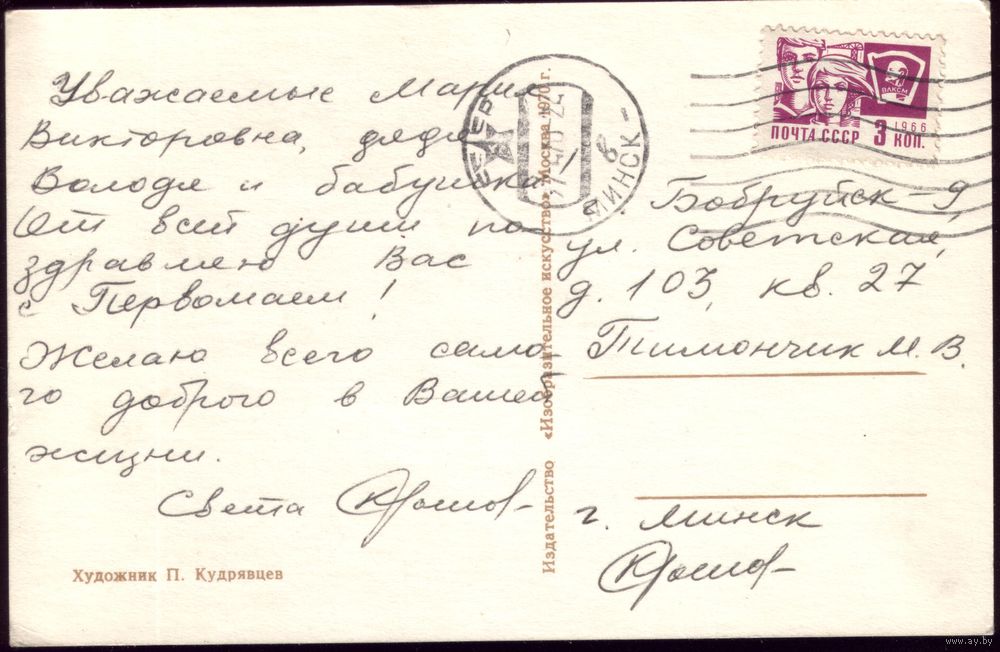 Уважаемые Мария
Викторовна, дядя
Володя и бабушка.
От всей души по
здравляю Вас
с Первомаем!
Желаю всего само-
го доброго в Вашей
жизни.
Света
Художник П. Кудрявцев
Издательство «Изобразительное искусство». Москва. 1970 г.
СССР
МИНСК
ВЛКСМ
1966
ПОЧТА СССР 3 КОП.
Бобруйск-9,
ул. Советская,
д. 103, кв. 27
Тимончик М. В.
г. Минск
www.ay.by